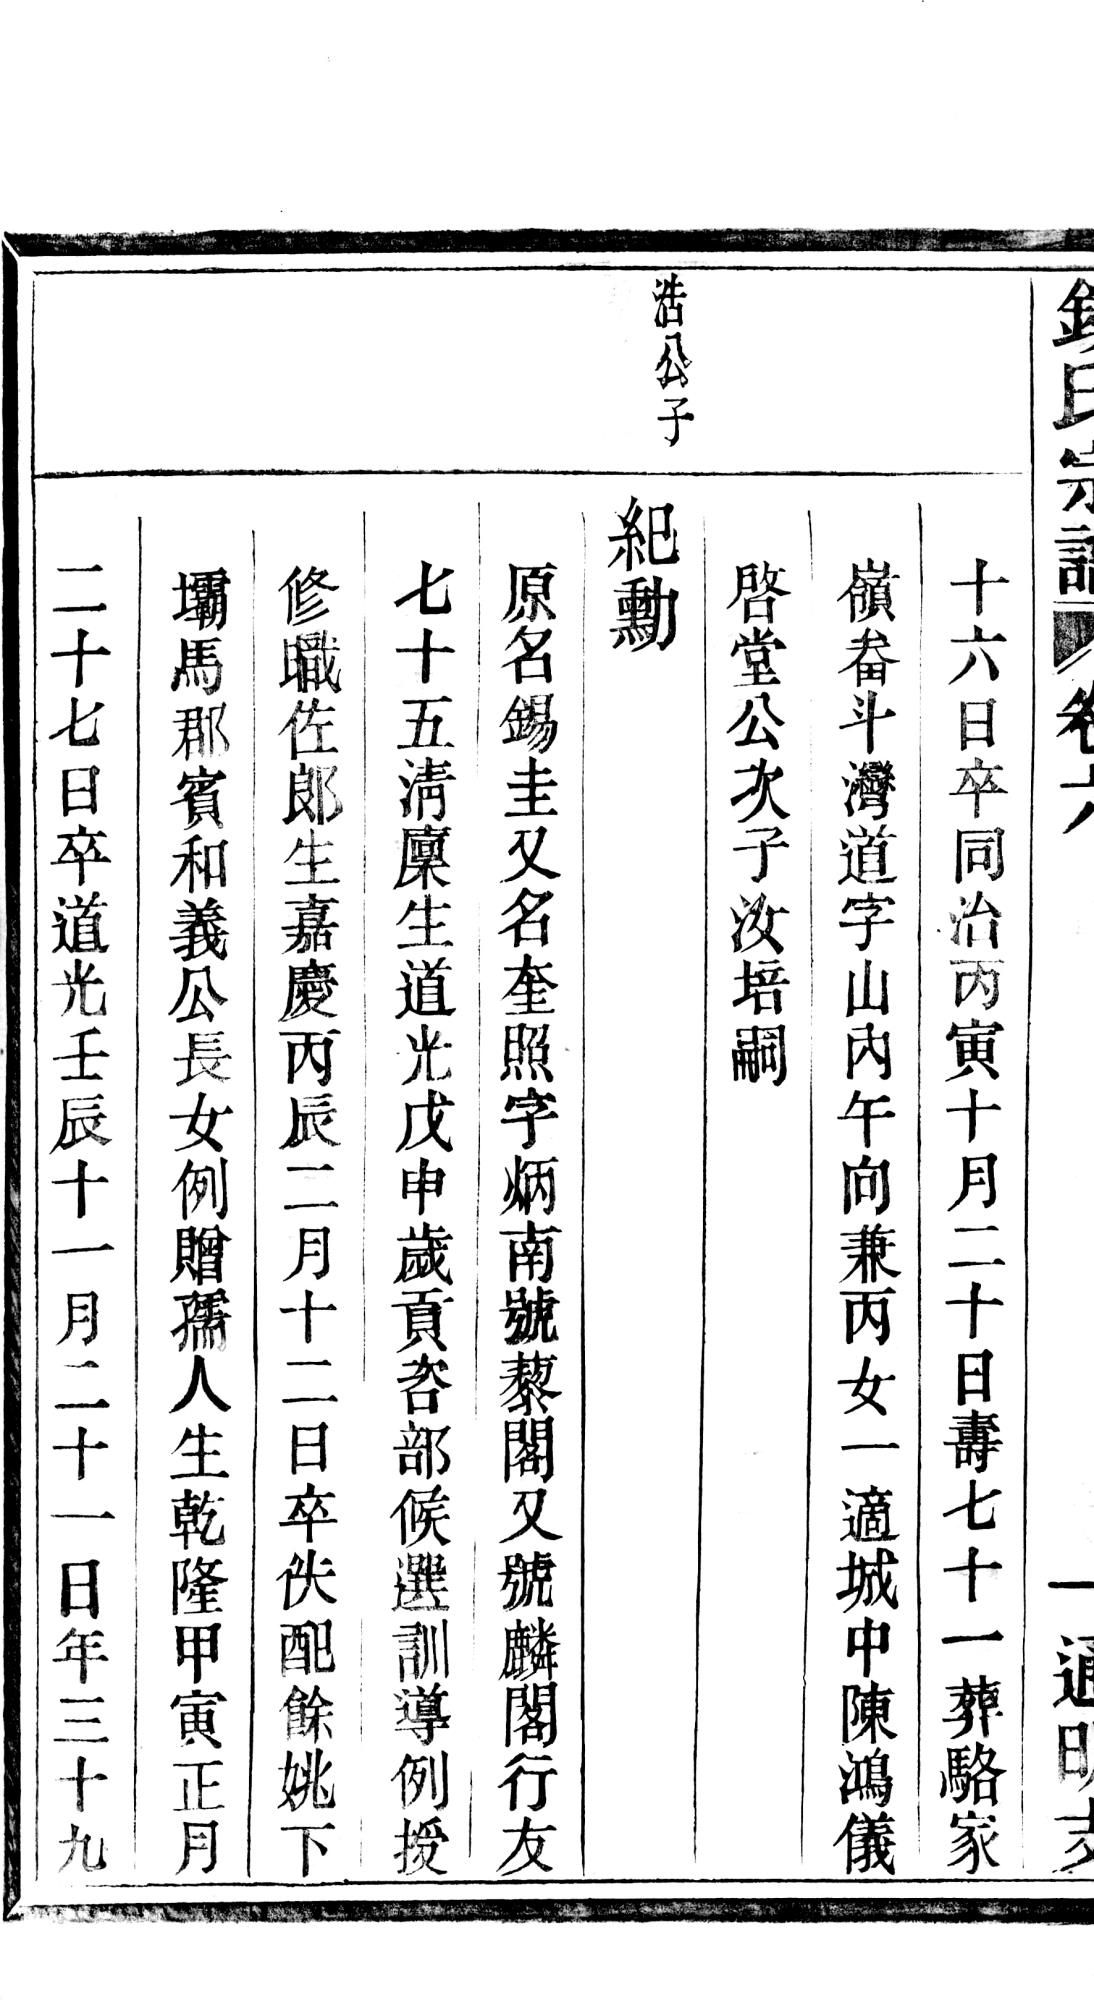 氏宗譜 卷六 一 通明支
十六日卒同治丙寅十月二十日壽七十一葬駱家
嶺畚斗灣道字山內午向兼丙女一適城中陳鴻儀
啓堂公次子汝培嗣
浩公子
紀勳
原名錫圭又名奎照字炳南號藜閣又號麟閣行友
七十五淸廩生道光戊申歲貢咨部候選訓導例授
修職佐郎生嘉慶丙辰二月十二日卒佚配餘姚下
壩馬郡賓和義公長女例贈孺人生乾隆甲寅正月
二十七日卒道光壬辰十一月二十一日年三十九